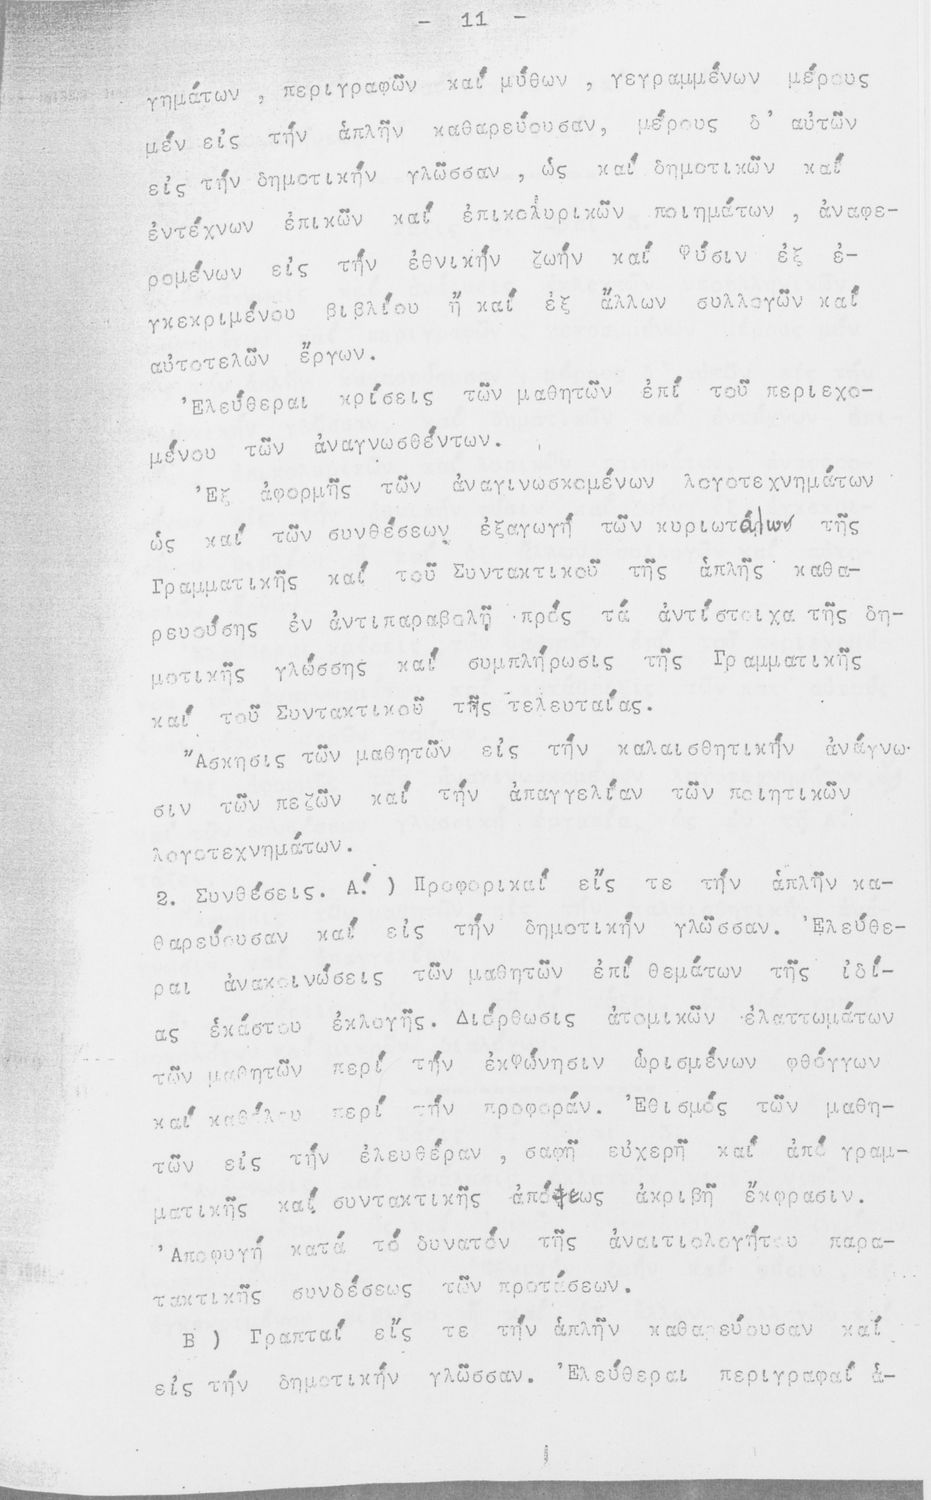 - 11 -
γημάτων , περιγραφῶν καί μύθων , γεγραμμένων μέρους
μέν εἰς τήν ἁπλῆν καθαρεύουσαν, μέρους δ' αὐτῶν
εἰς τήν δημοτικήν γλῶσσαν , ὡς καί δημοτικῶν καί
ἐντέχνων ἐπικῶν καί ἐπικολυρικῶν ποιημάτων , ἀναφε-
ρομένων εἰς τήν ἐθνικήν ζωήν καί Φύσιν ἐξ ἐ-
γκεκριμένου βιβλίου ἤ καί ἐξ ἄλλων συλλογῶν καί
αὐτοτελῶν ἔργων.
Ἐλεύθεραι κρίσεις τῶν μαθητῶν ἐπί τοῦ περιεχο-
μένου τῶν ἀναγνωσθέντων.
Ἐξ ἀφορμῆς τῶν ἀναγινωσκομένων λογοτεχνημάτων
ὡς καί τῶν συνθέσεων ἐξαγωγή τῶν κυριωτάτων τῆς
Γραμματικῆς καί τοῦ Συντακτικοῦ τῆς ἁπλῆς καθα-
ρευούσης ἐν ἀντιπαραβολῇ πρός τά ἀντίστοιχα τῆς δη-
μοτικῆς γλώσσης καί συμπλήρωσις τῆς Γραμματικῆς
καί τοῦ Συντακτικοῦ τῆς τελευταίας.
Ἄσκησις τῶν μαθητῶν εἰς τήν καλαισθητικήν ἀνάγνω-
σιν τῶν πεζῶν καί τήν ἀπαγγελίαν τῶν ποιητικῶν
λογοτεχνημάτων.
2. Συνθέσεις. Α΄ ) Προφορικαί εἴς τε τήν ἁπλῆν κα-
θαρεύουσαν καί εἰς τήν δημοτικήν γλῶσσαν. Ἐλεύθε-
ραι ἀνακοινώσεις τῶν μαθητῶν ἐπί θεμάτων τῆς ἰδί-
ας ἑκάστου ἐκλογῆς. Διόρθωσις ἀτομικῶν ἐλαττωμάτων
τῶν μαθητῶν περί τήν ἐκΦώνησιν ὡρισμένων φθόγγων
καί καθόλου περί τήν προφοράν. Ἐθισμός τῶν μαθη-
τῶν εἰς τήν ἐλευθέραν , σαφῆ εὐχερῆ καί ἀπό γραμ-
ματικῆς καί συντακτικῆς ἀπόψεως ἀκριβῆ ἔκφρασιν.
Ἀποφυγή κατά τό δυνατόν τῆς ἀναιτιολογήτου παρα-
τακτικῆς συνδέσεως τῶν προτάσεων.
Β ) Γραπταί εἴς τε τήν ἁπλῆν καθαρεύουσαν καί
εἰς τήν δημοτικήν γλῶσσαν. Ἐλεύθεραι περιγραφαί ἁ-